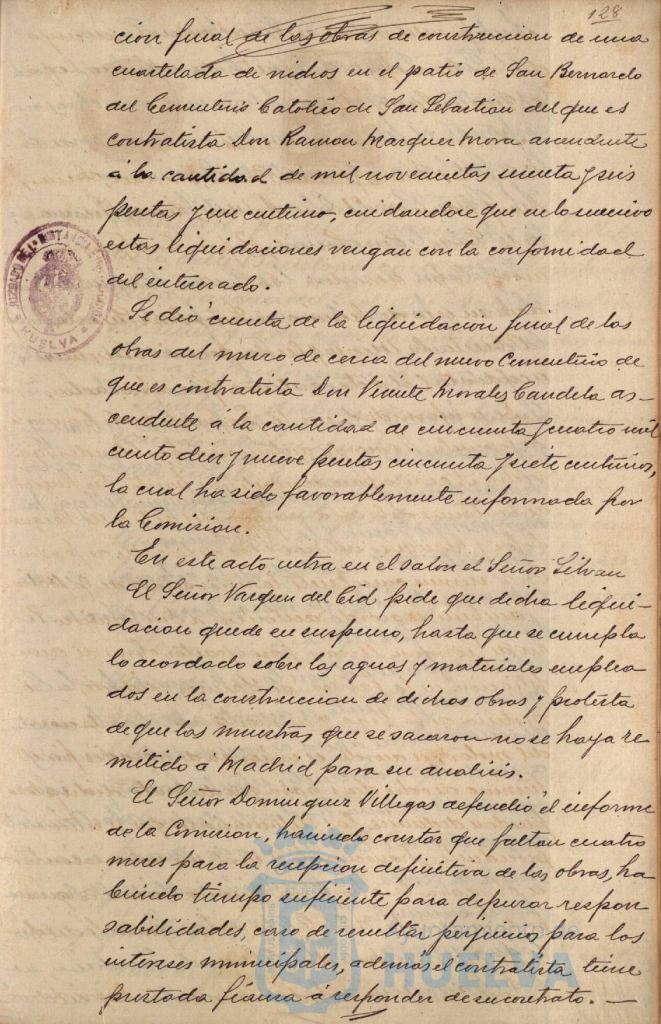 128
cion final de las obras de construccion de una
cuartelada de nichos en el patio de San Bernardo
del Cementerio Catolico de San Sebastian del que es
contratista Don Ramon Marquez Mora ascendente
á la cantidad de mil novecientas sesenta y seis
pesetas y un centimo, cuidandose que en lo sucesivo
estas liquidaciones vengan con la conformidad
del interesado.
Se dió cuenta de la liquidacion final de las
obras del muro de cerca del nuevo Cementerio de
que es contratista Don Vicente Morales Candela as-
cendente á la cantidad de cincuenta y cuatro mil
ciento diez y nueve pesetas cincuenta y siete centimos,
la cual ha sido favorablemente informada por
la Comision.
En este acto entra en el salon el Señor Silvan
El Señor Vazquez del Cid pide que dicha liqui-
dacion quede en suspenso, hasta que se cumpla
lo acordado sobre las aguas y materiales emplea
dos en la construccion de dichas obras y protesta
de que las muestras que se sacaron no se haya re
mitido á Madrid para su analisis.
El Señor Dominguez Villegas defendió el informe
de la Comision, haciendo constar que faltan cuatro
meses para la recepcion definitiva de las obras, ha
biendo tiempo suficiente para depurar respon
sabilidades, caso de resultar perjuicios para los
intereses municipales, además el contratista tiene
prestada fianza á responder de su contrato. —
HUELVA
HUELVA